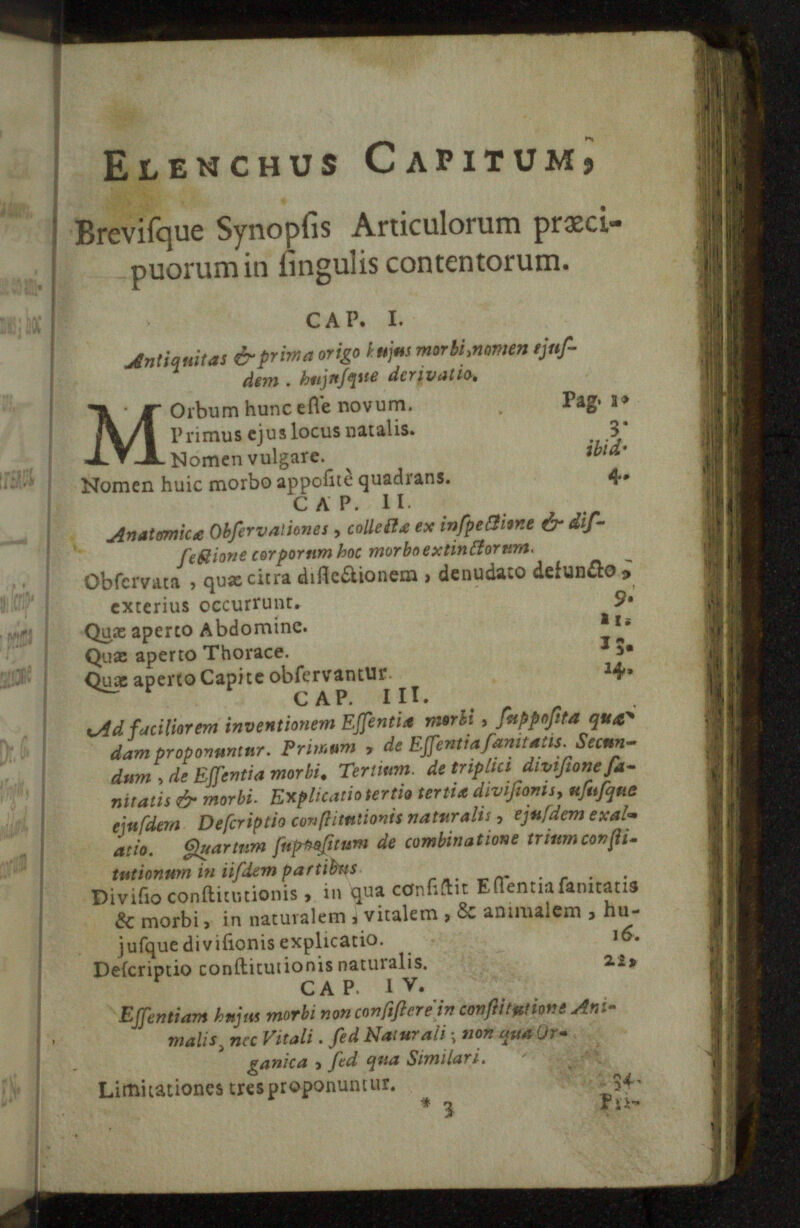 ELENCHUS CAPITUM,
Breviſque Synopſis Articulorum præci-
puorum in ſingulis contentorum.
CAP. I.
Antiquitas & prima origo hujus morbi, nomen ejuſ-
dem. hujuſque derivatio.
MOrbum hunc eſſe novum. Pag. 1.
Primus ejus locus natalis. 3.
Nomen vulgare. ibid.
Nomen huic morbo appoſitè quadrans. 4.
CAP. II.
Anatomicæ Obſervationes, collectæ ex inſpectione & diſ-
ſectione corporum hoc morbo extinctorum.
Obſervata, quæ citra diſſectionem, denudato defuncto,
exterius occurrunt. 9.
Quæ aperto Abdomine. 11.
Quæ aperto Thorace. 13.
Quæ aperto Capite obſervantur. 14.
CAP. III.
Ad faciliorem inventionem Eſſentiæ morbi, ſuppoſita quæ-
dam proponuntur. Primum, de Eſſentia ſanitatis. Secun-
dum, de Eſſentia morbi. Tertium. de triplici diviſione ſa-
nitatis & morbi. Explicatio tertio tertiæ diviſionis, uſuſque
ejuſdem Deſcriptio conſtitutionis naturalis, ejuſdem exal-
atio. Quartum ſuppoſitum de combinatione trium conſti-
tutionum in iiſdem partibus.
Diviſio conſtitutionis, in qua conſiſtit Eſſentia ſanitatis
& morbi, in naturalem, vitalem, & animalem, hu-
juſque diviſionis explicatio. 16.
Deſcriptio conſtitutionis naturalis. 22,
CAP. IV.
Eſſentiam hujus morbi non conſiſtere in conſtitutione Ani-
malis, nec Vitali. ſed Naturali; non qua Or-
ganica, ſed qua Similari.
Limitationes tres proponuntur. 34.
* 3